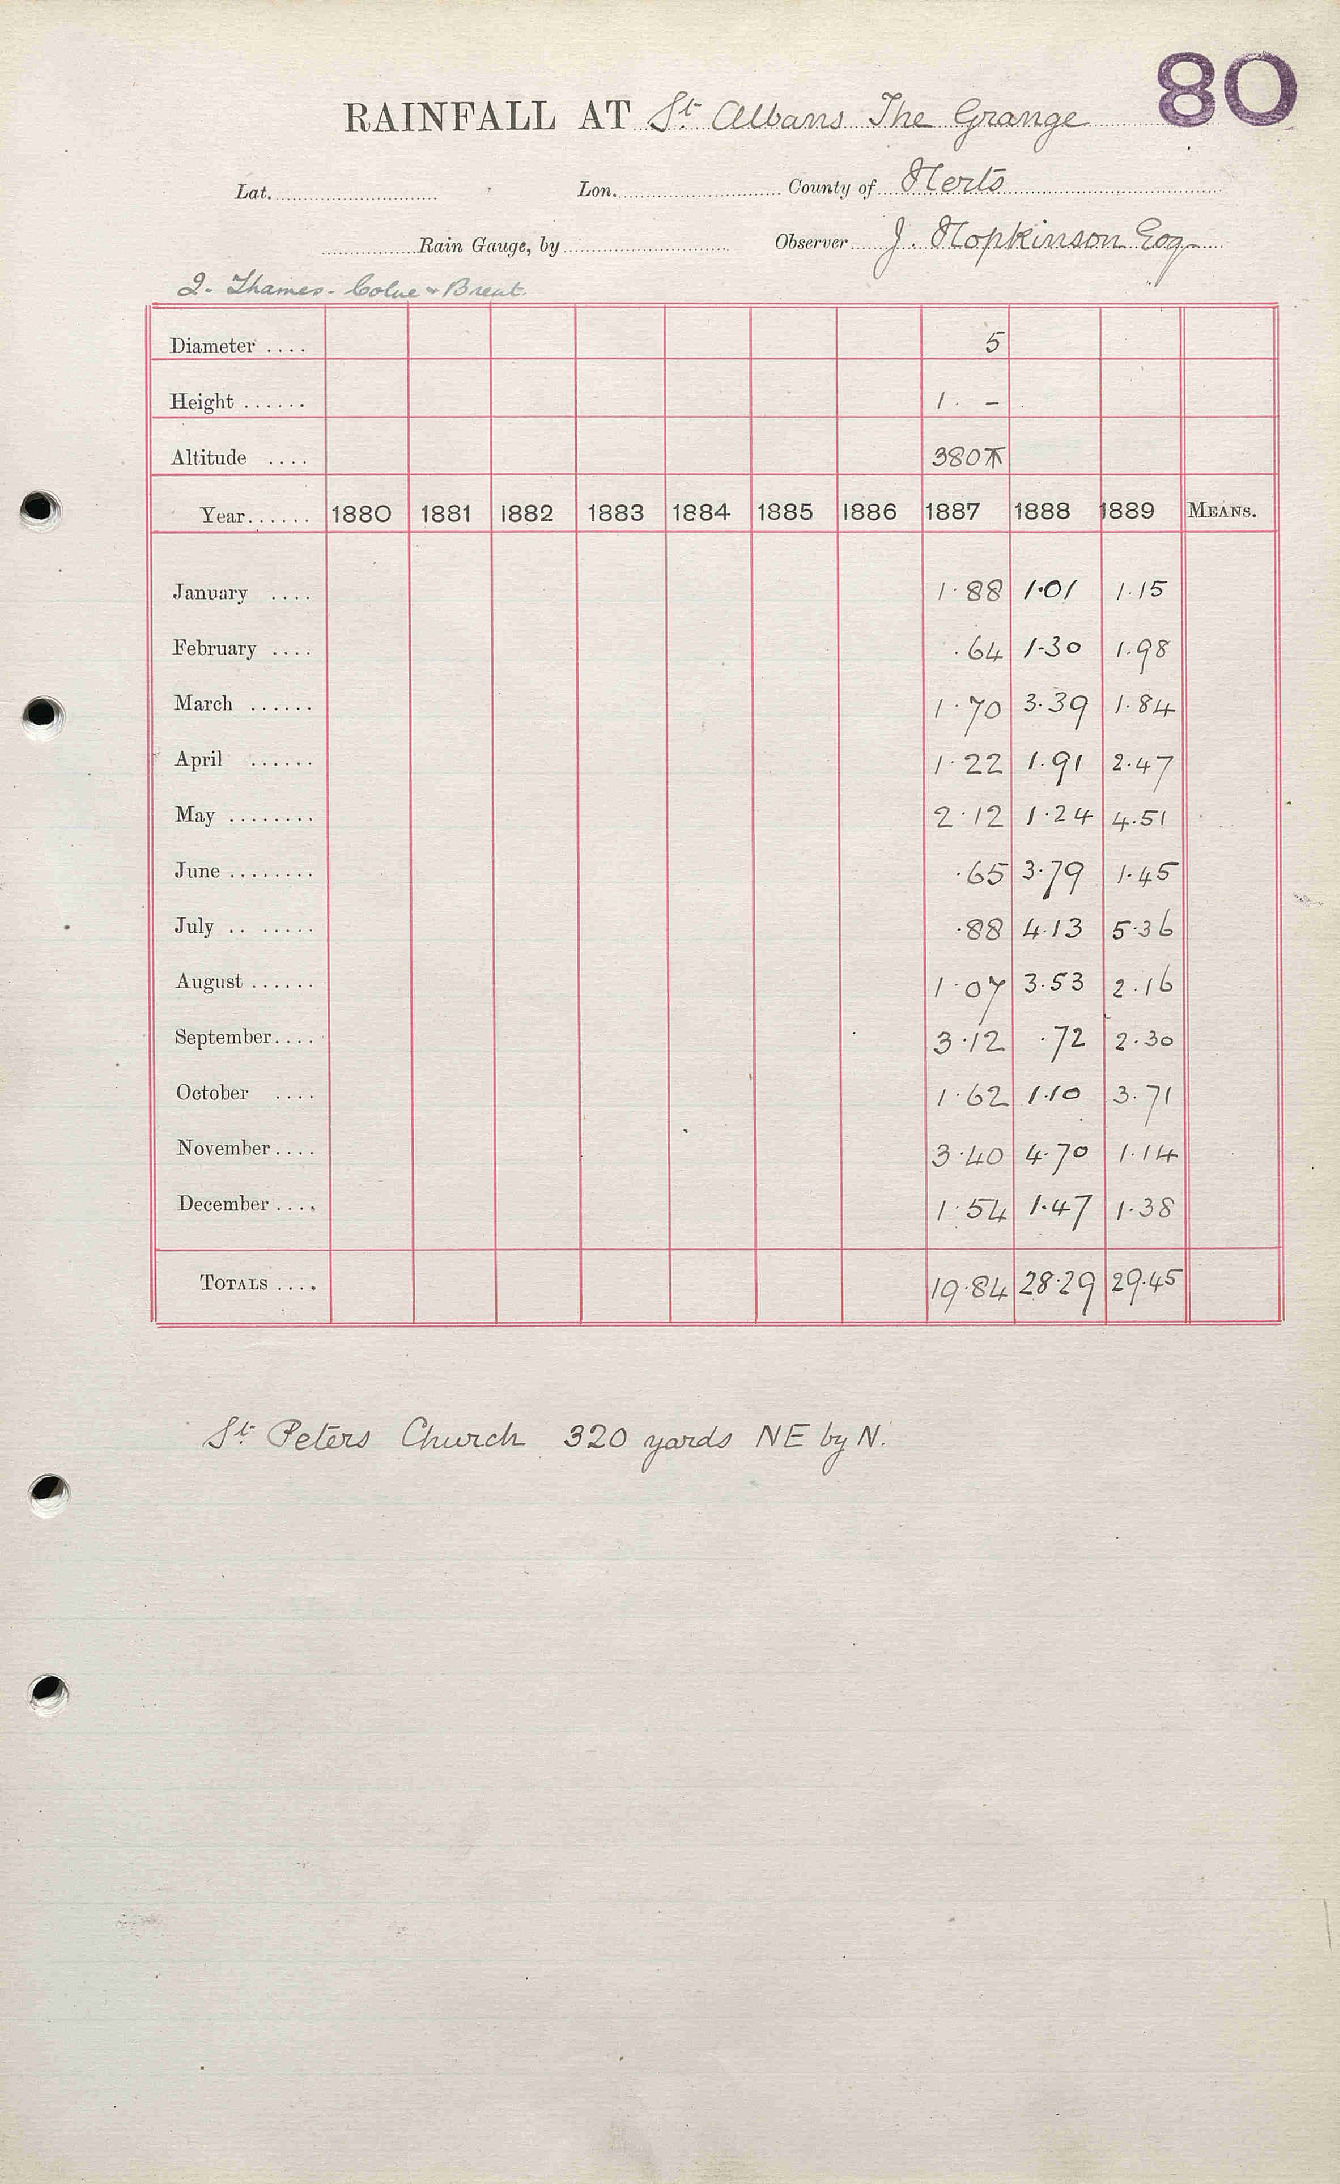 80
RAINFALL AT St. Albans The Grange
Lat. Lon. County of Herts
Rain Gauge, by Observer J. Hopkinson Esq
2. Thames. Colne & Brent.
Diameter .... 5
Height ...... 1. –
Altitude ....
Year...... 1880 1881 1882 1883 1884 1885 1886 1887 1888 1889 MEANS.
January .... 1.88 1.01 1.15
February .... .64 1.30 1.98
March ...... 1.70 3.39 1.84
April ...... 1.22 1.91 2.47
May ........ 2.12 1.24 4.51
June ........ .65 3.79 1.45
July .. ...... .88 4.13 5.36
August ...... 1.07 3.53 2.16
September.... 3.12 .72 2.30
October .... 1.62 1.10 3.71
November.... 3.40 4.70 1.14
December.... 1.54 1.47 1.38
TOTALS .... 19.84 28.29 29.45
St. Peters Church 320 yards NE by N.